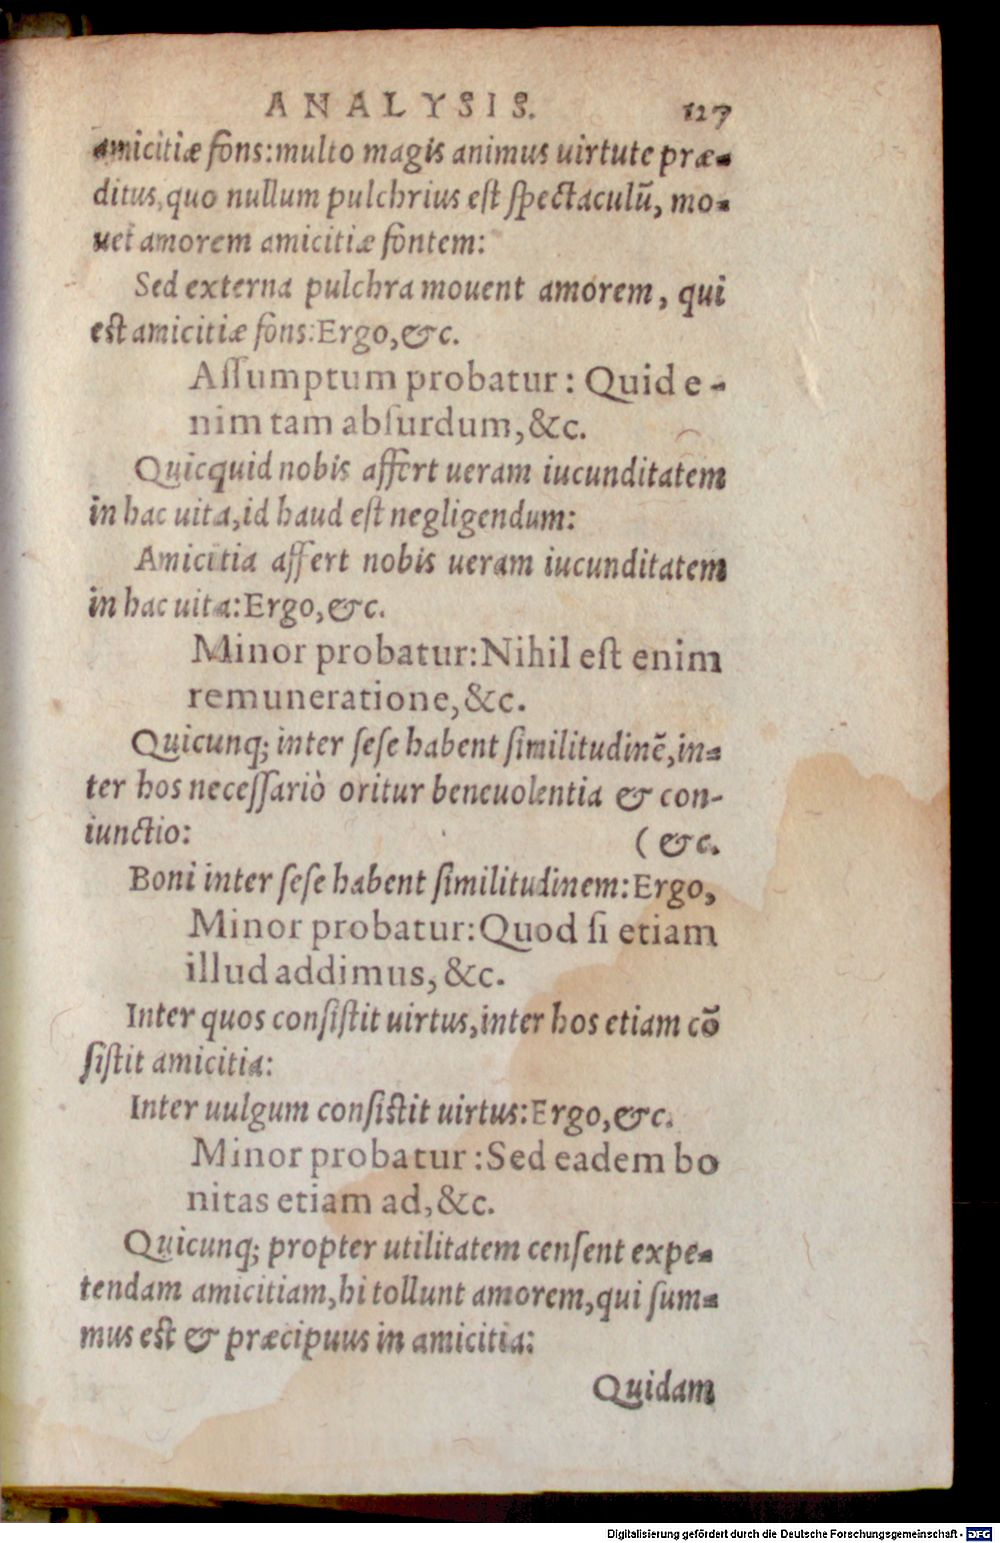 ANALYSIS. 127
amicitiæ fons: multo magis animus uirtute præ-
ditus, quo nullum pulchrius eſt ſpectaculũ, mo-
uet amorem amicitiæ fontem:
Sed externa pulchra mouent amorem, qui
eſt amicitiæ fons: Ergo, &c.
Aſſumptum probatur: Quid e-
nim tam abſurdum, &c.
Quicquid nobis affert ueram iucunditatem
in hac uita, id haud eſt negligendum:
Amicitia affert nobis ueram iucunditatem
in hac uita: Ergo, &c.
Minor probatur: Nihil eſt enim
remuneratione, &c.
Quicunq; inter ſeſe habent ſimilitudinẽ, in-
ter hos neceſſariò oritur beneuolentia & con-
iunctio: (&c.
Boni inter ſeſe habent ſimilitudinem: Ergo,
Minor probatur: Quod ſi etiam
illud addimus, &c.
Inter quos conſiſtit uirtus, inter hos etiam cõ
ſiſtit amicitia:
Inter uulgum conſiſtit uirtus: Ergo, &c.
Minor probatur: Sed eadem bo
nitas etiam ad, &c.
Quicunq; propter utilitatem cenſent expe-
tendam amicitiam, hi tollunt amorem, qui ſum-
mus eſt & præcipuus in amicitia:
Quidam
Digitalisierung gefördert durch die Deutsche Forschungsgemeinschaft - DFG